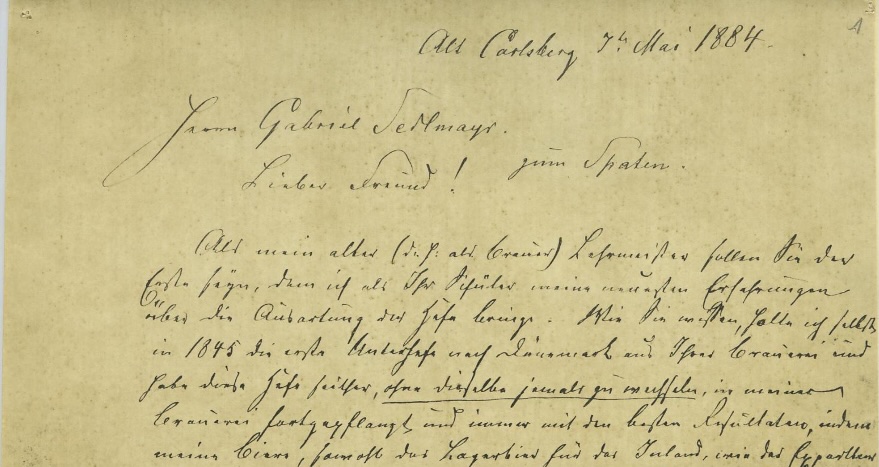 1
Alt Carlsberg 7th Mai 1884.
Herrn Gabriel Sedlmayr.
zum Spaten.
Lieber Freund!
Als mein alter (d: h: als Brauer) Lehrmeister sollen Sie der
Erste seyn, dem ich als Ihr Schüler meine neuesten Erfahrungen
über die Ausartung der Hefe bringe. Wie Sie wissen, holte ich selbst
in 1845 die erste Unterhefe nach Dänemark aus Ihrer Brauerei und
habe diese Hefe seither, ohne dieselbe jemals zu wechseln, in meiner
Brauerei fortgepflanzt und immer mit den besten Resultaten, indem
meine Biere, sowohl das Lagerbier für das Inland, wie das